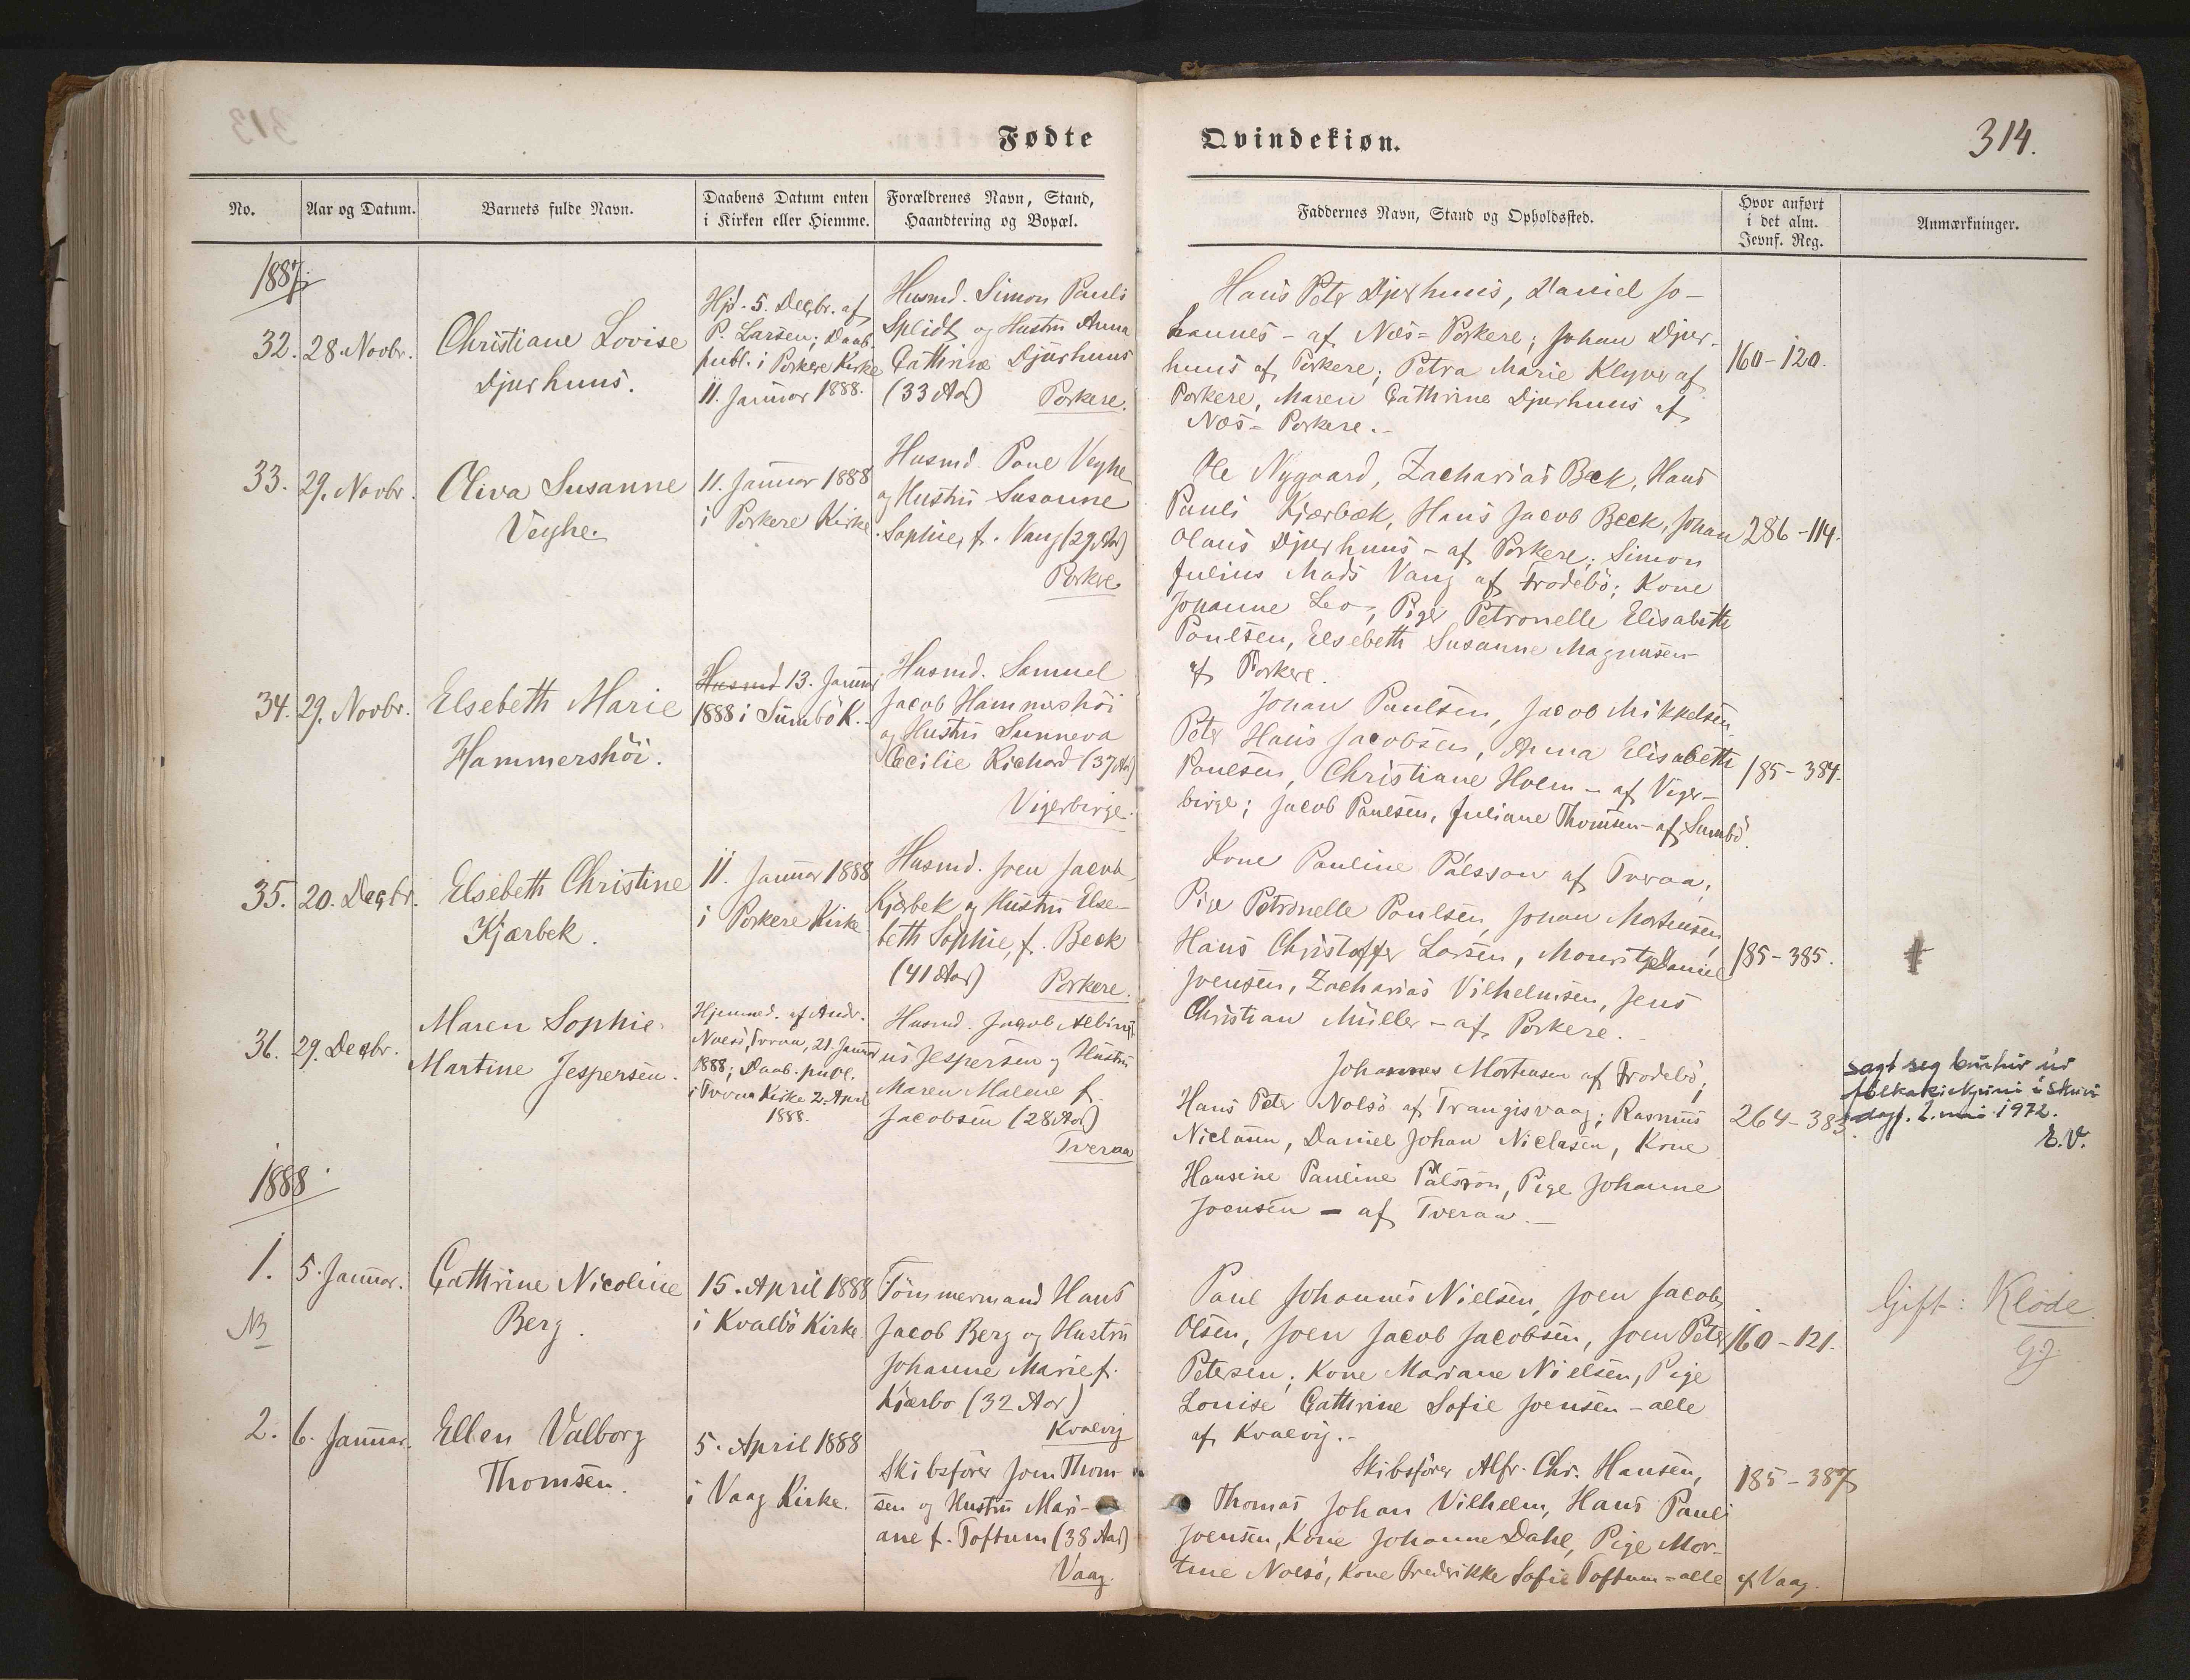 Fødte
Qvindekiøn.
314.
No.
Aar og Datum.
Barnets fulde Navn.
Daabens Datum enten
i Kirken eller Hiemme.
Forældrenes Navn, Stand,
Haandtering og Bopæl.
Faddernes Navn, Stand og Opholdssted.
Hvor anført
i det alm.
Jevnf. Reg.
Anmærkninger.
1887.
32.
28 Novbr.
Christiane Lovise
Djurhuus.
Hjd. 5. Decbr. af
P. Larsen; Daab.
publ. i Porkere Kirke
11. Januar 1888.
Husmd. Simon Pauli
Splidt og Hustru Anna
Cathrine Djurhuus
(33 Aar)
Porkere.
Hans Peter Djurhuus, Daniel Jo-
hannes - af Næs=Porkere; Johan Djur-
huus af Porkere; Petra Marie Klyve af
Porkere, Maren Cathrine Djurhuus af
Næs=Porkere.-
160-120.
33.
29. Novbr.
Oliva Susanne
Veyhe.
11. Januar 1888
i Porkere Kirke.
Husmd. Poul Veyhe
og Hustru Susanne
Sophie, f. Vang (29 Aar)
Porkere
Ole Nygaard, Zacharias Beck, Hans
Pauli Kjærbæk, Hans Jacob Beck, Johan
Olaus Djurhuus - af Porkere; Simon
Julius Mads Vang af Frodebö; Kone
Johanne Leo, Piger Petronelle Elisabeth
Poulsen, Elsebeth Susanne Magnussen
af Porkere.
286-114.
34.
29. Novbr.
Elsebeth Marie
Hammershöi.
Husmd 13. Januar
1888 i Sumbö K.
Husmd. Samuel
Jacob Hammershöi
og Hustru Sunneva
Cecilie Richard (37 Aar)
Vigerbirge.
Johan Poulsen, Jacob Mikkelsen,
Peter Hans Jacobsen, Anna Elisabeth
Poulsen, Christiane Holm - af Viger-
birge; Jacob Poulsen, Juliane Thomsen - af Sumbö.
185-384.
35.
20. Decbr.
Elsebeth Christine
Kjærbek.
11. Januar 1888
i Porkere Kirke
Husmd. Joen Jacob
Kjærbek og Hustru Else-
beth Sophie, f. Beck
(41 Aar)
Porkere.
Kone Pauline Pálsson af Tveraa,
Pige Petronelle Poulsen, Johan Mortensen,
Hans Christoffer Larsen, Mourits Daniel
Joensen, Zacharias Vilhelmsen, Jens
Christian Müller - af Porkere.
185-385.
36.
29. Decbr.
Maren Sophie
Martine Jespersen.
Hjemmed. af Andr.
Noesö, Tveraa, 21. Januar
1888; Daab. publ.
i Tveraa Kirke 2. April
1888.
Husmd. Jacob Albin-
us Jespersen og Hustru
Maren Malene f.
Jacobsen (28 Aar)
Tveraa
Johannes Mortensen af Frodebö;
Hans Peter Nolsö af Trangisvaag; Rasmus
Niclasen, Daniel Johan Niclasen, Kone
Hansine Pauline Pálsson, Pige Johanne
Joensen - af Tveraa.-
264-383.
sagt seg burtur úr
fólkakirkjuni í skriv
dagf. 2. mai 1972.
E.V.
1888.
1.
5. Januar.
Cathrine Nicoline
Berg.
15. April 1888
i Kvalbö Kirke
Tömmermand Hans
Jacob Berg og Hustru
Johanne Marie f.
Kjærbo (32 Aar)
Kvalvig
Poul Johannes Nielsen, Joen Jacob
Olsen, Joen Jacob Jacobsen, Joen Peter
Petersen; Kone Mariane Nielsen, Pige
Louise Cathrine Sofie Joensen - alle
af Kvalvig.-
160-121.
Gift: Kløde
NB
2.
6. Januar.
Ellen Valborg
Thomsen.
5. April 1888
i Vaag Kirke.
Skibsförer Joen Thom-
sen og Hustru Mari-
ane f. Toftum (38 Aar)
Vaag.
Skibsförer Alfr. Chr. Hansen,
Thomas Johan Vilhelm, Hans Pauli
Joensen, Kone Johanne Dahl, Pige Mor-
tine Nolsö, Kone Fredrikke Sofie Toftum - alle af Vaag.
185-387